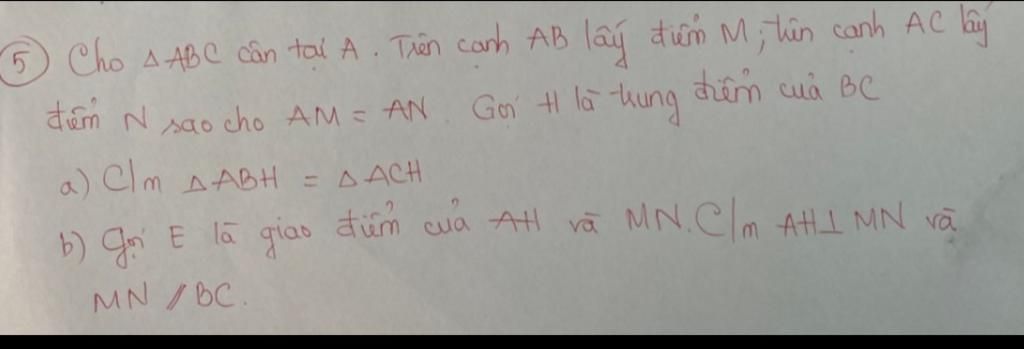 5 Cho △ABC cân tại A. Trên cạnh AB lấy điểm M; trên cạnh AC lấy
điểm N sao cho AM = AN. Gọi H là trung điểm của BC
a) C/m △ABH = △ACH
b) Gọi E là giao điểm của AH và MN. C/m AH⊥MN và
MN // BC.